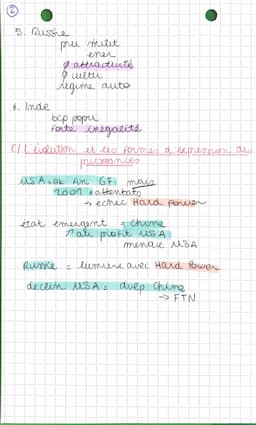 ②
5. Russie
puu milit
ener
∅ attractivité
∅ cultu
régime auto
6. Inde
bcp popu
forte inégalité
C/ L'évolution et les formes d'expression des
puissances
USA = ok fin GF mais
2001 attentats
→ echec Hard Power
état emergent = Chine
↗ au profit USA
menace USA
Russie = lumière avec Hard Power
declin USA = dvep Chine
→ FTN